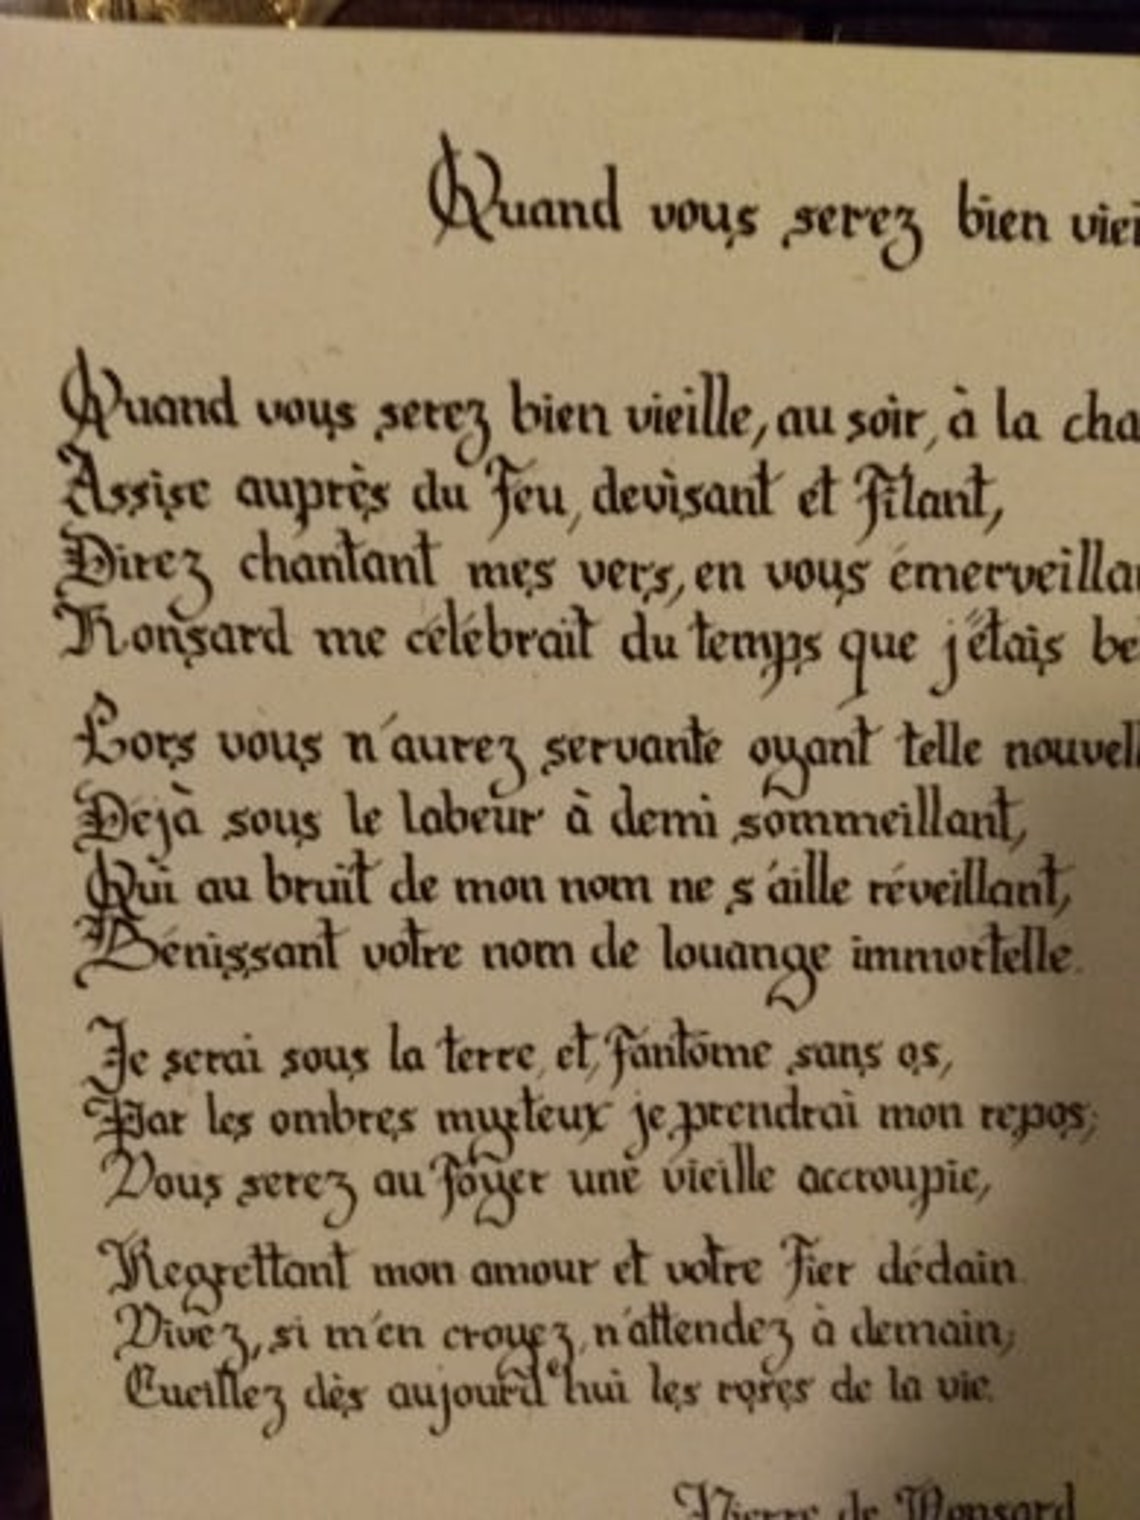 Quand vous serez bien viei
Quand vous serez bien vieille, au soir, à la cha
Assise auprès du feu, devisant et filant,
Direz chantant mes vers, en vous émerveilla
Ronsard me célébrait du temps que j'étais be
Lors vous n'aurez servante oyant telle nouvell
Déjà sous le labeur à demi sommeillant,
Qui au bruit de mon nom ne s'aille réveillant,
Bénissant votre nom de louange immortelle.
Je serai sous la terre, et, fantôme sans os,
Par les ombres myrteux je prendrai mon repos;
Vous serez au foyer une vieille accroupie,
Regrettant mon amour et votre fier dédain.
Vivez, si m'en croyez, n'attendez à demain;
Cueillez dès aujourd'hui les roses de la vie.
Pierre de Ronsard